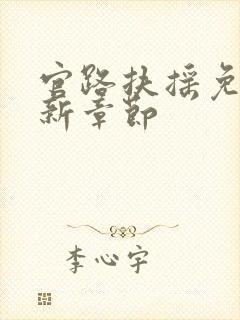 官路扶摇免
新章节
李心宇